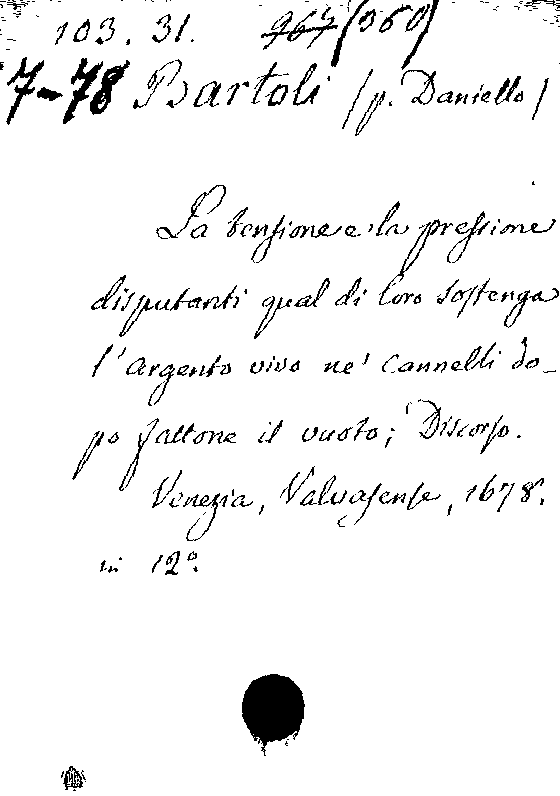 103. 31. 967 (360)
7-78 Bartoli /p. Daniello/
La tensione e la pressione
disputanti qual di loro sostenga
l'Argento vivo ne' Cannelli do_
po fattone il vuoto; Discorso.
Venezia, Valvasense, 1678.
in 12º.